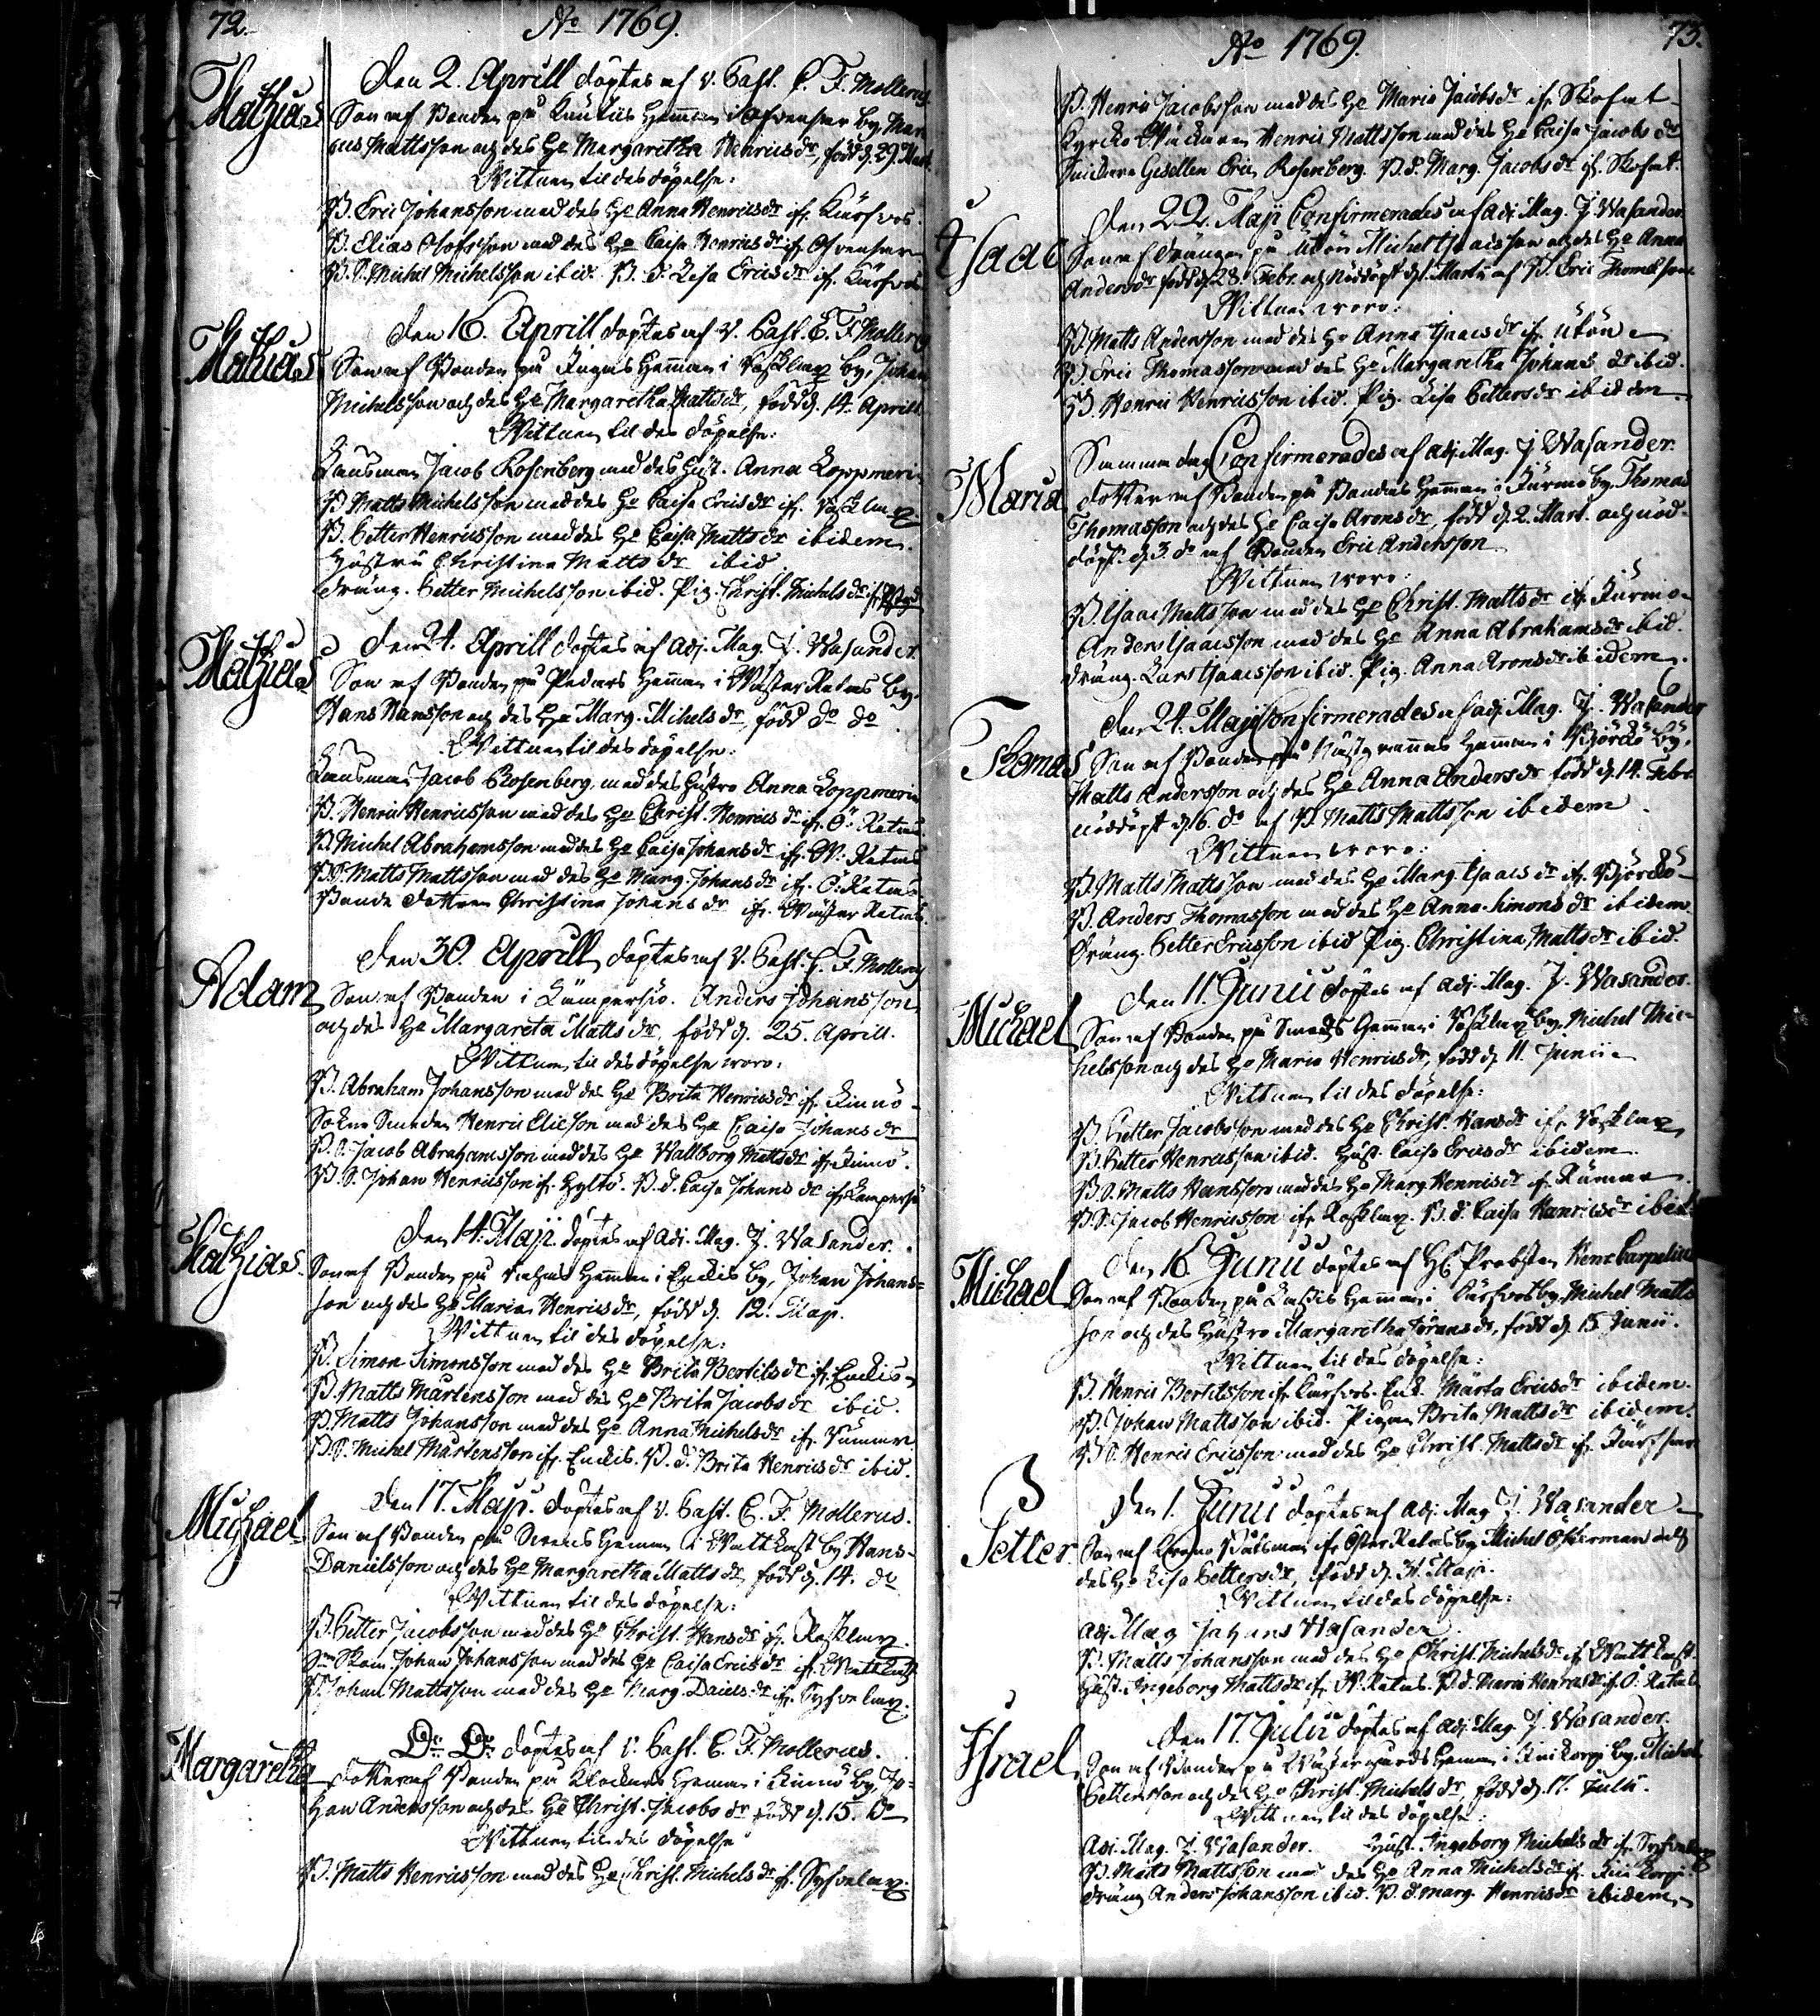 72.
No 1769.
Mathias
Den 2. Aprill döptes af v. Past. C. F. Mollerus
Son af Bonden på Hemman i by, Mar
cus Mattsson och des Ho Margaretha Henricsdr, född d. 29. Mart.
Wittnen til des döpelse:
B. Eric Johansson med des Ho Anna Henricsdr ifr. Kärfvos.
B. Elias Olofsson med des Ho Caisa Henricsdr ifr.
B. S. Michel Michelsson ibid. B. d. Lisa Ericsdr ifr. Kärfvos
Mathias
Den 16. Aprill döptes af v. Past. C. F. Mollerus
Son af Bonden på Hemman i by, Johan
Michelsson och des Ho Margaretha Mattsdr, född d. 14. Aprill.
Wittnen til des döpelse:
Länsman Jacob Rosenberg med des Hust. Anna Koppmerin
B. Matts Michelsson med des Ho Caisa Ericsdr ifr.
B. Petter Henricsson med des Ho Caisa Mattsdr ibidem.
Hustru Christina Mattsdr ibid
dräng. Petter Michelsson ibid. Pig. Christ. Michelsdr
Mathias
Den 24. Aprill döptes af Adj. Mag. J. Wasander.
Son af Bonden på Peders Hemman i Wäster Ratns by.
Hans Hansson och des Ho Marg. Michelsdr, född do do
Wittnen til des döpelse:
Länsman Jacob Rosenberg, med des Hustro Anna Koppmerin
B. Henric Henricsson med des Ho Christ. Henricsdr ifr. Ö. Ratns.
B. Michel Abrahamsson med des Ho Caisa Johansdr ifr. W. Ratns
B. S. Matts Mattsson med des Ho Marg. Johansdr ifr. Ö. Ratns
Bonde dottren Christina Johansdr ifr. Wäster Ratns.
Adam
Den 30. Aprill, döptes af v. Past. C. F. Mollerus
Son af Bonden i Lämpersiö. Anders Johansson
och des Ho Margareta Mattsdr, född d. 25. Aprill.
Wittnen til des döpelse woro:
B. Abraham Johansson med des Ho Brita Henricsdr ifr. Kinnö.
Sokne Smeden Henric Elicson med des Ho Caisa Johansdr
B. S. Jacob Abrahamsson med des Ho Wallborg Mattsdr ifr. Kimo.
B. S. Johan Henricsson ifr. Hyltö. B. d. Caisa Johansdr ifr. Lampersiö
Mathias
Den 14. Maji döptes af Adj. Mag. J. Wasander.
Son af Bonden på Hemman i by, Johan Johans=
son och des Ho Maria Henricsdr, född d. 12. Maji.
Wittnen til des döpelse:
B. Simon Simonsson med des Ho Brita Bertilsdr ifr.
B. Matts Mårtensson med des Ho Brita Jacobsdr ibid.
B. Matts Johansson med des Ho Anna Michelsdr ifr.
B. S. Michel Mårtensson ifr. B. d. Brita Henricsdr ibid.
Michael
Den 17. Maji. döptes af v. Past. C. F. Mollerus.
Son af Bonden på Svens Heman i Wattkast by Hans
Danielsson och des Ho Margaretha Mattsdr, född d. 14. do
Wittnen til des döpelse:
B. Petter Jacobsson med des Ho Christ. Hansdr ifr.
Johan Johansson med des Ho Caisa Ericsdr ifr. Wattkast
B. Johan Mattsson med des Ho Marg. Daniels dr ifr.
Margaretha
Do Do döptes af v. Past. C. F. Mollerus.
dotter af Bonden på Klockars Heman i Kimo by, Jo=
han Andersson och des Ho Christ. Jacobsdr född d. 15. Do
Wittnen til des döpelse
B. Matts Henricsson med des Ho Christ. Michelsdr ifr.
No 1769.
73.
B. Henric Jacobsson med des Ho Maria Jacobsdr ifr.
Kyrcko Wäcktaren Henric Mattsson med des Ho Caisa Jacobsdr
Gesellen Eric Rosenberg. B. d. Marg. Jacobsdr ifr.
Isaac
Den 22. Maji Confirmerades af Adj. Mag. J. Wasander.
Son af drängen på Utön Michel Isacsson och des Ho Anna
Andersdr född d. 28. Febr. och nöddöpt d. 1. Martii af B. Eric Thomasson
Wittnen woro:
B. Matts Andersson med des Ho Anna Isaacsdr ifr. Utön
B. Eric Thomasson med des Ho Margaretha Johansdr ibid.
B. Henric Henricsson ibid. Pig. Lisa Pettersdr ibidem
Maria
Samma dag Confirmerades af Adj. Mag. J. Wasander.
dotter af Bonden på Bondas Hemman i Kürmo by. Thomas
Thomasson och des Ho Caisa Aronsdr, född d. 2. Mart. och nöd=
döpt. d. 3. do af Bonden Eric Andersson
Wittnen woro:
B. Isaac Mattsson med des Ho Christ. Mattsdr ifr. Kürmo
Anders Isaacsson med des Ho Anna Abrahamsdr ibid.
dräng. Lars Isaacsson ibid. Pig. Anna Aronsdr ibidem.
Thomas
Den 24. Maji Confirmerades af Adj. Mag. J. Wasander
Son af Bonden på Hemman i Björkö by.
Matts Andersson och des Ho Anna Andersdr född d. 14. Febr.
nöddöpt d. 16 do af B. Matts Mattsson ibidem
Wittnen woro:
B. Matts Mattsson med des Ho Marg. Isaacsdr ifr. Björkö
B. Anders Thomasson med des Ho Anna Simonsdr ibidem
dräng. Petter Ericsson ibid Pig. Christina Mattsdr ibid.
Michael
Den 11. Junii döptes af Adj. Mag. J. Wasander.
Son af Bonden på Smeds Hemman i by, Michel Mic=
helsson och des Ho Maria Henricsdr, född d. 11. Junii
Wittnen til des döpelse:
B. Petter Jacobsson med des Ho Christ. Hansdr ifr.
B. Petter Henricsson ibid. Hust. Caisa Ericsdr ibidem.
B. S. Matts Hansson med des Ho Marg. Henricsdr ifr.
B. S. Jacob Henricsson ifr. B. d. Caisa Henricsdr ibid.
Michael
Den 16 Junii döptes af H. Probsten Henr. Carpelius
Son af Bonden på Hemman i Kärfvos by, Michel Matts
son och des Hustro Margaretha Göransdr, född d. 15 Junii.
Wittnen til des döpelse:
B. Henric Bertilsson ifr. Kärfvos. Enk. Märta Ericsdr ibidem.
B. Johan Mattsson ibid. Pigan Brita Mattsdr ibidem.
B. S. Henric Ericsson med des Ho Christ. Mattsdr ifr.
Petter
Den 1. Junii döptes af Adj. Mag J. Wasander
Son af Båtsman ifr. Öster Ratns by Michel Åkerman och
des Ho Lisa Pettersdr, född d. 31. Maji.
Wittnen til des döpelse:
Adj. Mag Johans Wasander
B. Matts Johansson med des Ho Christ. Michelsdr ifr. Wattkast.
Hust. Ingeborg Mattsdr ifr. W. Ratns. B. d. Maria Henricsdr ifr. Ö. Ratns
Israel
Den 17. Julii döptes af Adj. Mag J. Wasander.
Son af Bonden på Wästergårds Heman i by. Michel
Pettersson och des Ho Christ. Michelsdr, född d. 17. Julii.
Wittnen til des döpelse:
Adj. Mag. J. Wasander. Hust. Ingeborg Michelsdr ifr.
B. Matts Mattsson med des Ho Anna Michelsdr ifr.
dräng Anders Johansson ibid. B. d. Marg. Henricsdr ibidem